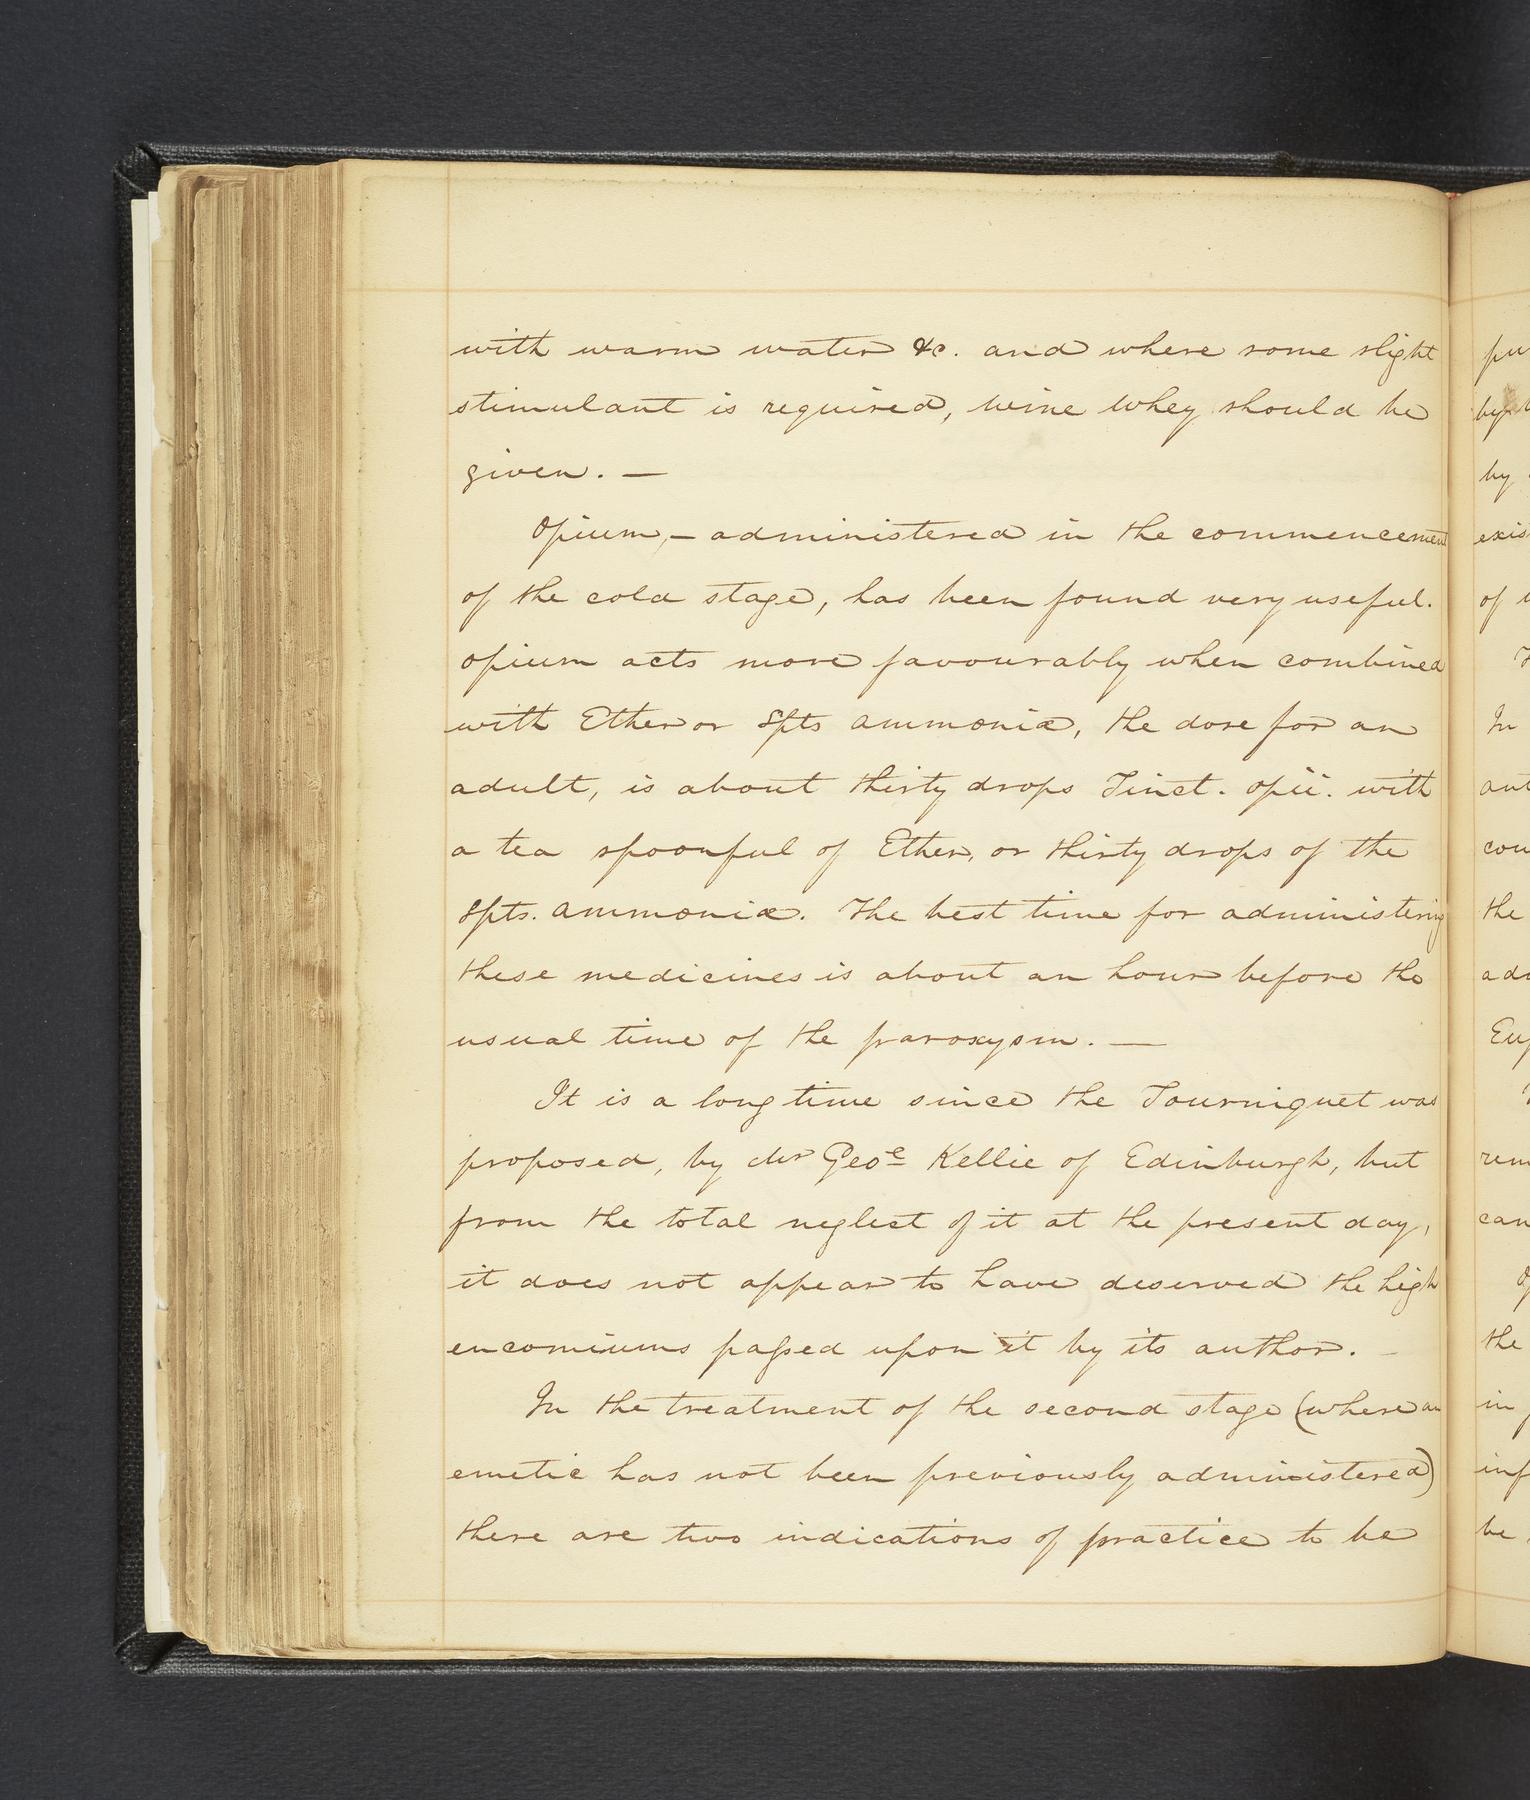 with warm water &c. and where some slight
stimulant is required, wine whey should be
given. —
Opium, — administered in the commencement
of the cold stage, has been found very useful.
opium acts more favourably when combined
with Ether or Spts ammoniæ, the dose for an
adult, is about thirty drops Tinct. opii. with
a tea spoonful of Ether, or thirty drops of the
Spts. ammoniæ. The best time for administering
these medicines is about an hour before the
usual time of the paroxysm. —
It is a long time since the Tourniquet was
proposed, by Mr Geoe Kellie of Edinburgh, but
from the total neglect of it at the present day,
it does not appear to have deserved the high
encomiums paſsed upon it by its author. -
In the treatment of the second stage (where an
emetic has not been previously administered)
there are two indications of practice to be
by
by
of
In
the
the
in
be